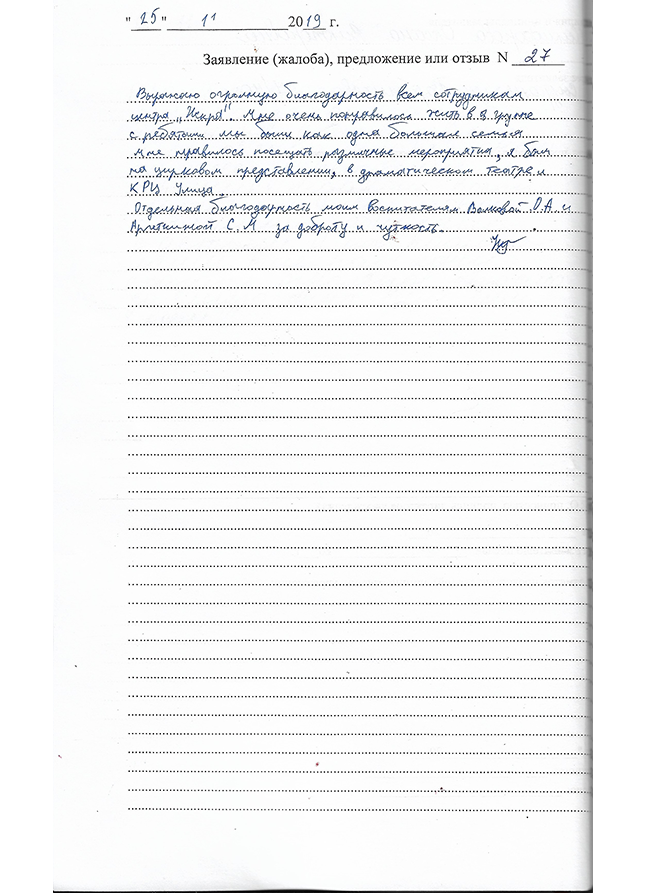 "25" 11 2019 г.
Заявление (жалоба), предложение или отзыв N 27
Выражаю огромную благодарность всем сотрудникам
центра „Искра". Мне очень понравилось жить в 8 группе
с ребятами мы были как одна большая семья
мне нравилось посещать различные мероприятия, я был
на цирковом представлении, в драматическом театре и
КРЦ Улица.
Отдельная благодарность моим воспитателям Волковой О.А и
С.М за доброту и чуткость